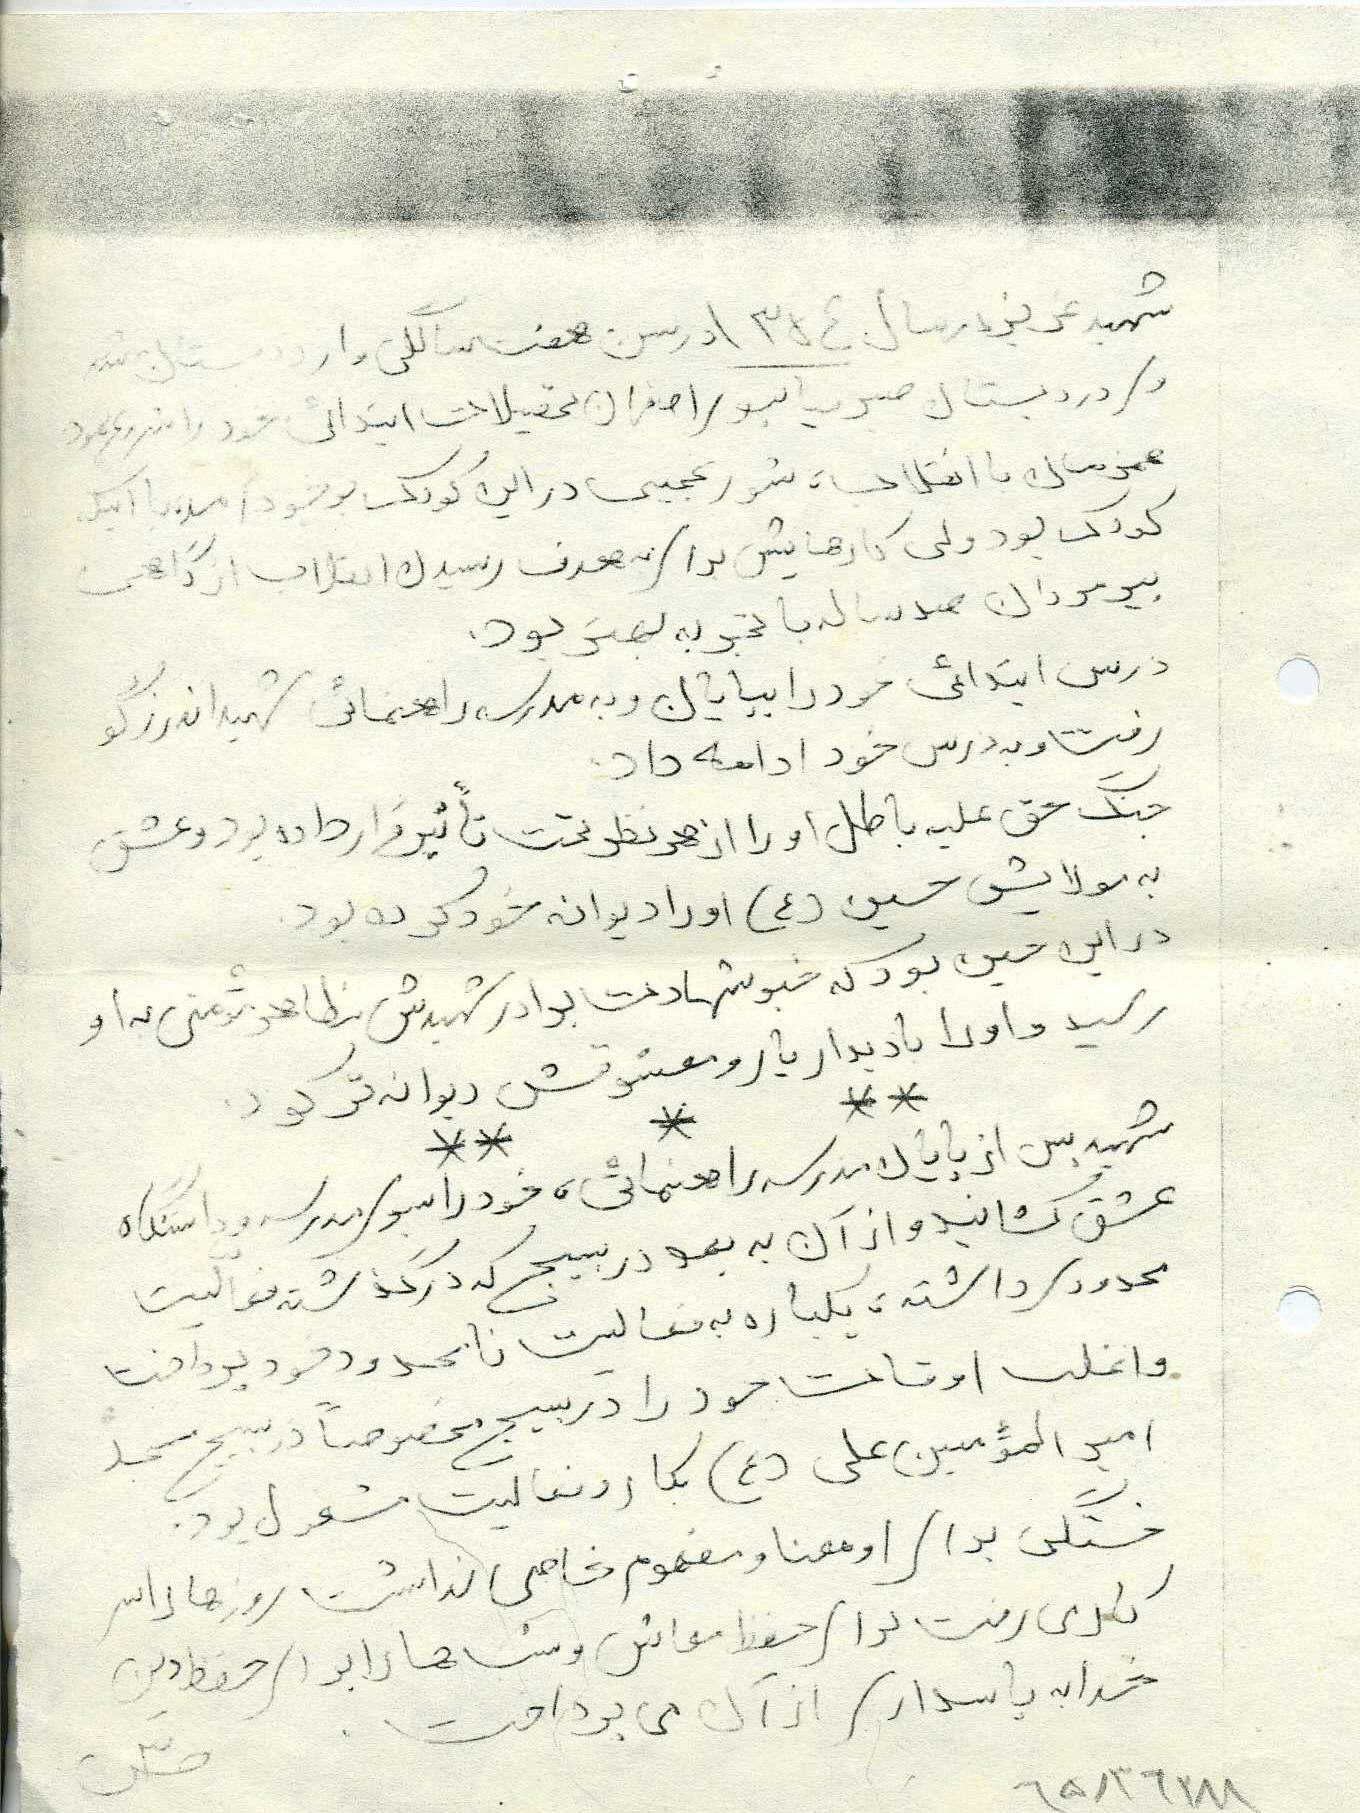 شهید عزیز در سال ۱۳۵۴ در سن هفت سالگی وارد دبستان شد
و در دبستان صبوریا نیوی اصفهان تحصیلات ابتدائی خود را شروع نمود
همزمان با انقلاب، شور عجیبی در این کودک بوجود آمد، با اینکه
کودک بود ولی کارهایش برای به هدف رسیدن انقلاب از گاهی
پیرمردان صد ساله با تجربه بهتر بود.
درس ابتدائی خود را بپایان و به مدرسه راهنمائی شهید اندرزگو
رفت و به درس خود ادامه داد.
جنگ حق علیه باطل او را از هر نظر تحت تأثیر قرار داده بود و عشق
به مولایش حسین (ع) او را دیوانه خود کرده بود.
در این حین بود که خبر شهادت برادر شهیدش مظاهر ثمنی به او
رسید و او را با دیدار یار و معشوقش دیوانه تر کرد.
** * **
شهید پس از پایان مدرسه راهنمائی، خود را بسوی مدرسه و دانشگاه
عشق کشانید و از آن به بعد در بسیج که در گذشته فعالیت
محدودی داشته، یکباره به فعالیت نامحدود خود پرداخت
و اغلب اوقات خود را در بسیج مخصوصاً در بسیج مسجد
امیر المؤمنین علی (ع) بکار و فعالیت مشغول بود.
خستگی برای او معنا و مفهوم خاصی نداشت روزها را سر
کار می رفت برای حفظ معاش و شب ها را برای حفظ دین
خدا به پاسداری از آن می پرداخت.
۶۵/۳۶۲۸۸